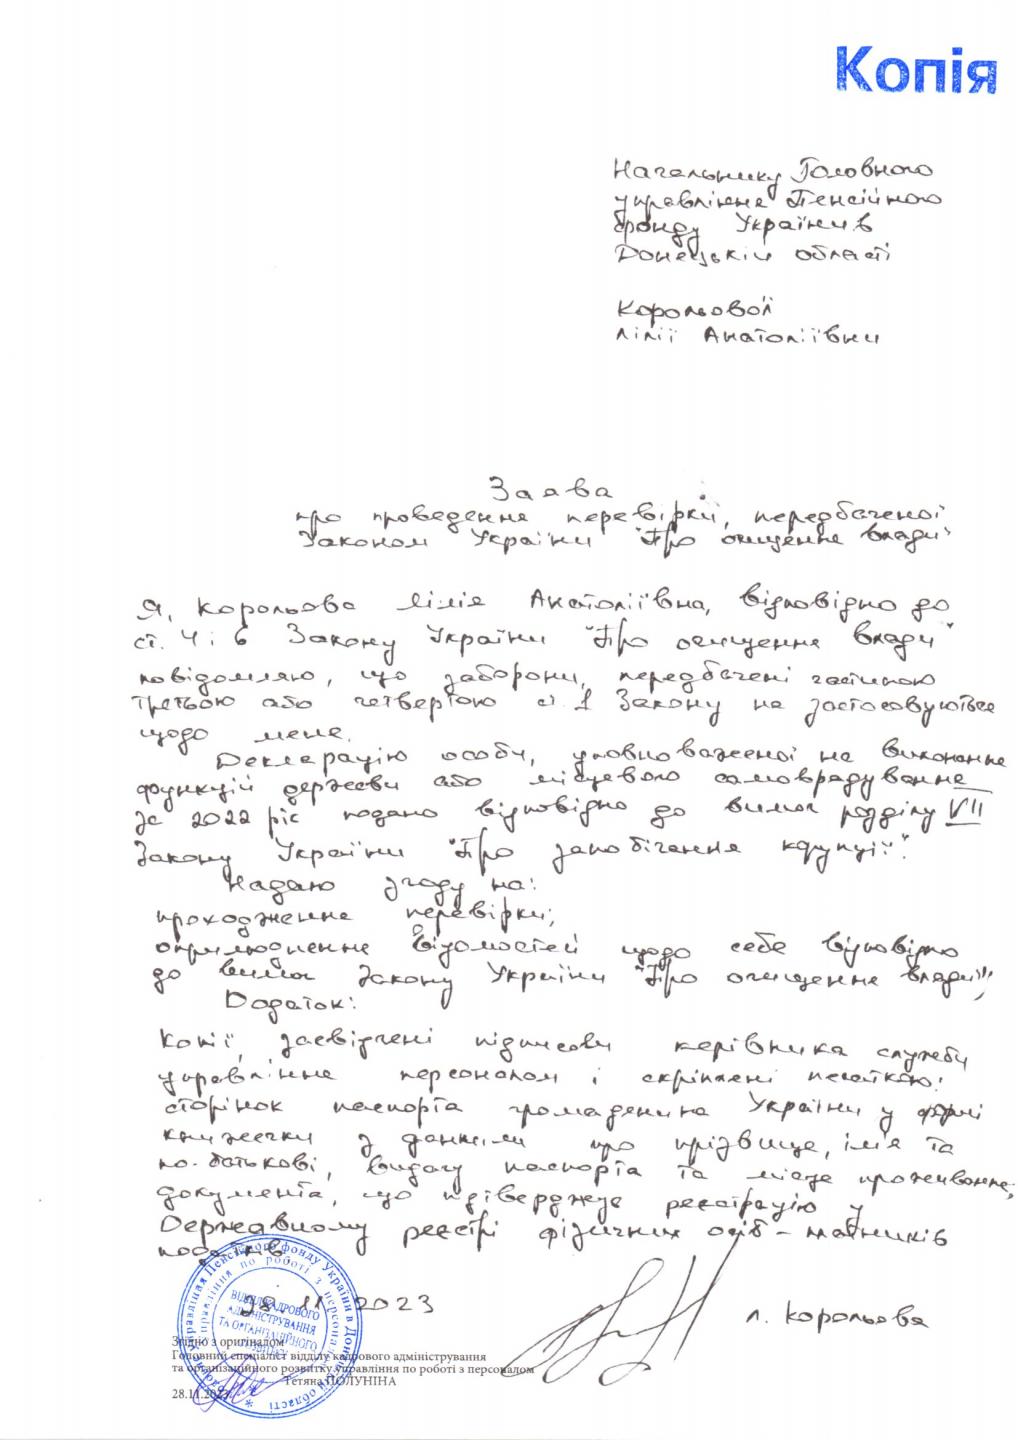 Копія
Начальнику Головного
управління Пенсійного
фонду України в
Донецькій області
Корольової
Лілії Анатоліївни
Заява
про проведення перевірки, передбаченої
Законом України "Про очищення влади"
Я, Корольова Лілія Анатоліївна, відповідно до
ст. 4 і 6 Закону України "Про очищення влади"
повідомляю, що заборони, передбачені частиною
третьою або четвертою ст. 1 Закону не застосовуються
щодо мене.
Декларацію особи, уповноваженої на виконання
функцій держави або місцевого самоврядування
за 2022 рік подано відповідно до вимог розділу VII
Закону України "Про запобігання корупції".
Надаю згоду на:
проходження перевірки;
оприлюднення відомостей щодо себе відповідно
до вимог Закону України "Про очищення влади";
Додаток:
Копії, засвідчені підписом керівника служби
управління персоналом і скріплені печаткою:
сторінок паспорта громадянина України у формі
книжечки з даними про прізвище, ім'я та
по-батькові, видачу паспорта та місце проживання;
документа, що підтверджує реєстрацію у
Державному реєстрі фізичних осіб - платників
податків
28.11.2023 Л. Корольова
ВІДДІЛ КАДРОВОГО
АДМІНІСТРУВАННЯ
ТА ОРГАНІЗАЦІЙНОГО
РОЗВИТКУ
Згідно з оригіналом
Головний спеціаліст відділу кадрового адміністрування
та організаційного розвитку управління по роботі з персоналом
Тетяна ПОЛУНІНА
28.11.2023